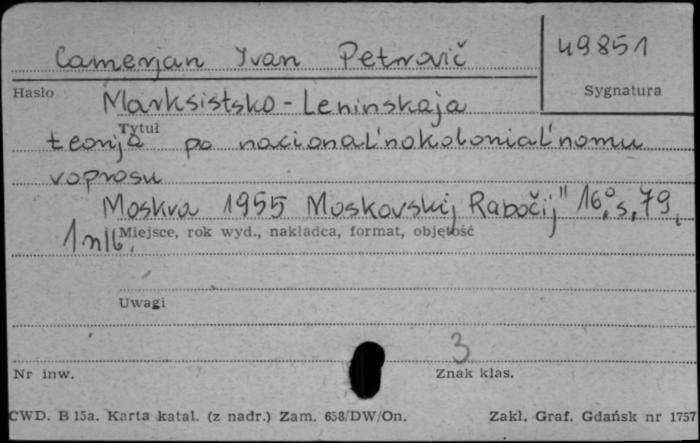 Camerjan Ivan Petrovič
49851
Hasło
Sygnatura
Marksistsko-Leninskaja
Tytuł
teorija po nacional'nokolonial'nomu
voprosu
Moskva 1955 Moskovskij Rabočij" 16°, s. 79,
Miejsce, rok wyd., nakładca, format, objętość
1 nlb.
Uwagi
3
Nr inw.
Znak klas.
CWD. B 15a. Karta katal. (z nadr.) Zam. 658/DW/On.
Zakł. Graf. Gdańsk nr 1757